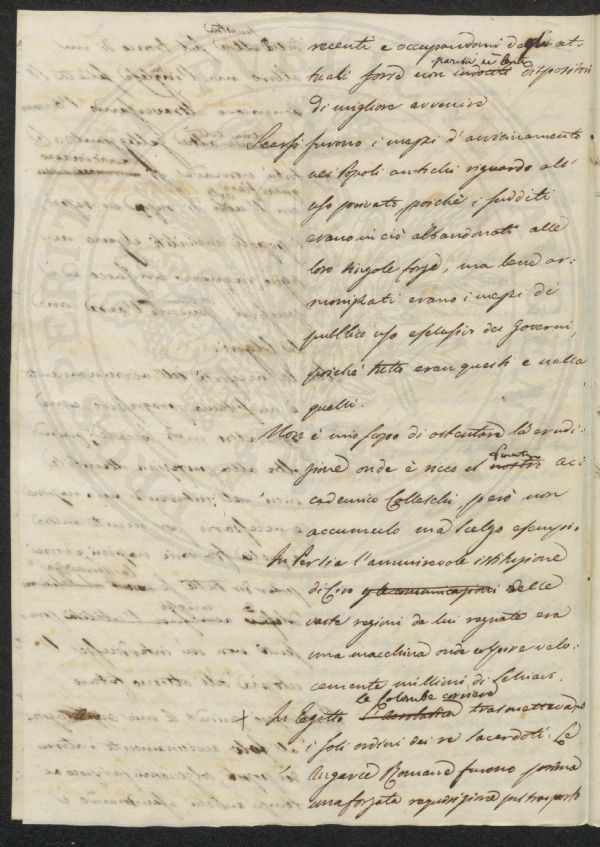 recenti e occupandomi degli at-
tuali forse non parchi nè lenti dispositori
di migliore avvenire
Scarsi furono i mezzi d'avvicinamento
nei Popoli antichi riguardo all'
uso privato poichè i sudditi
erano in ciò abbandonati alle
loro singole forze, ma bene ar-
monizzati erano i mezzi di
pubblico uso esclusivi dei Governi,
poichè tutto eran questi e nulla
quelli.
Non è mio scopo di ostentare l'erudi-
zione onde è ricco il nostro ac-
cademico Colleschi, però non
accumulo ma scelgo esempi.
In Persia l'ammirevole istituzione
di Ciro e le comunicazioni delle
vaste regioni da lui regnate era
una macchina onde colpire velo-
cemente millioni di Schiavi.
le Colombe corriere
+ In Egitto trasmettevano
i soli ordini dei re sacerdoti. Le
Angarie Romane furono prima
una forzata requisizione pel trasporto